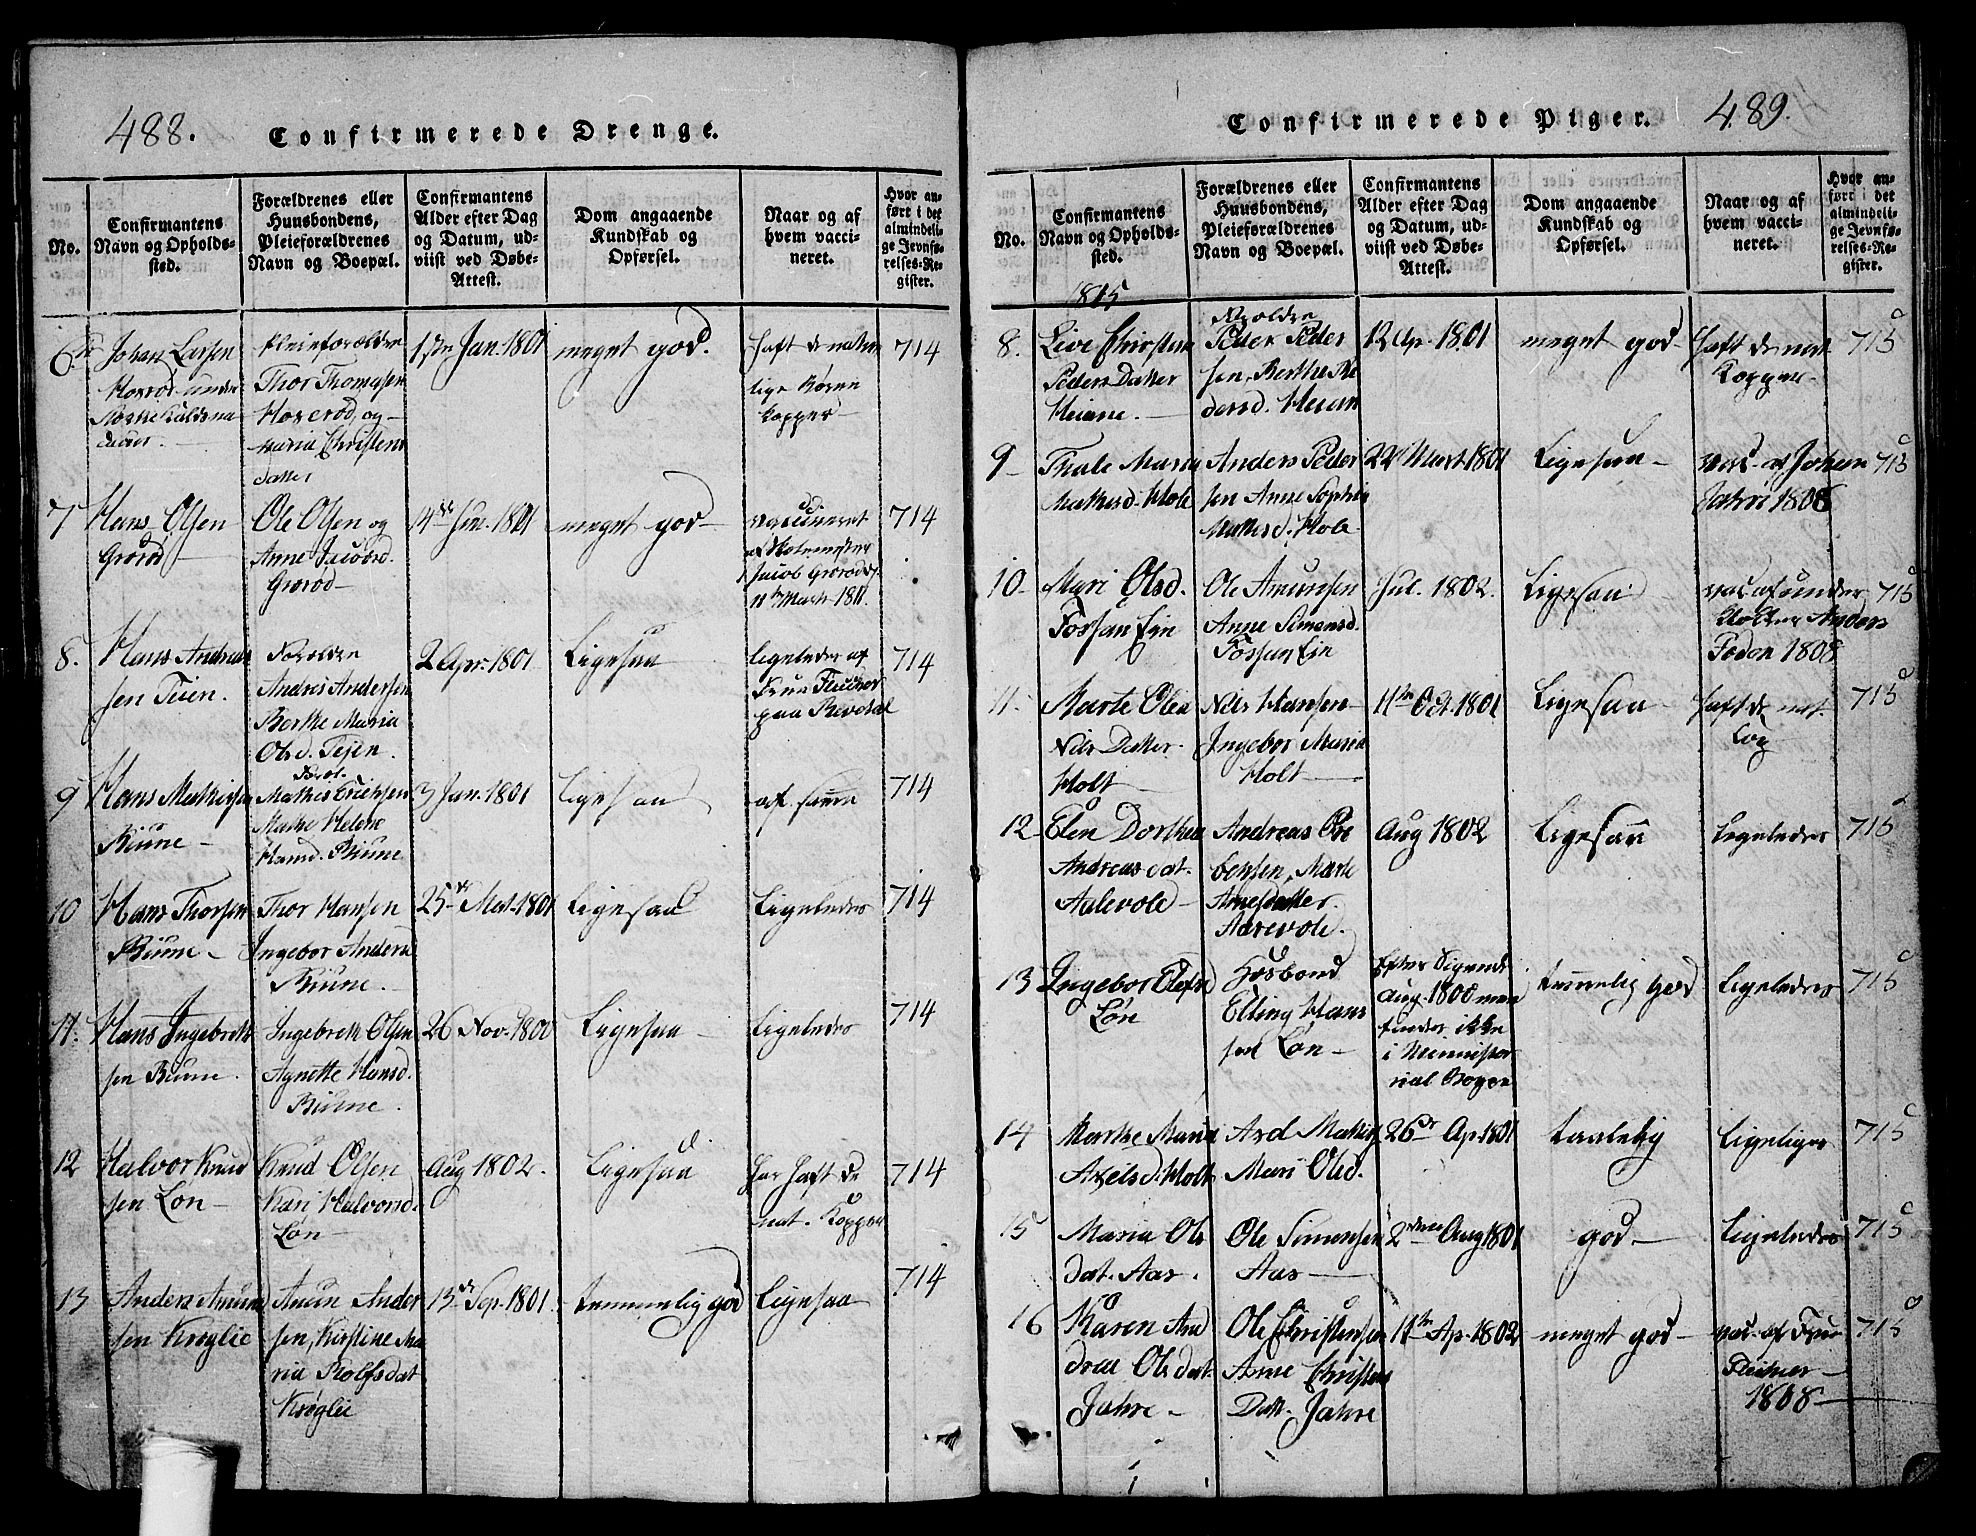 488.
Confirmerede Drenge.
No.
Confirmantens
Navn og Opholds-
sted.
Forældrenes eller
Huusbondens,
Pleieforældrenes
Navn og Boepæl.
Confirmantens
Alder efter Dag
og Datum, ud-
viist ved Døbe-
Attest.
Dom angaaende
Kundskab og
Opførsel.
Naar og af
hvem vacci-
neret.
Hvor an-
ført i det
almindeli-
ge Jevnfø-
relses-Re-
gister.
6
Johan Larsen
Pleieforældre
Thor Thomasen
Hoxerod, og
Maria Christens
datter
1ste Jan. 1801
meget god.
haft de natur
lige
Kopper
714
7
Hans Olsen
Grorod
Ole Olsen og
Anne Jacobsd.
Grorod
14de Jun. 1801
meget god
vaccineret
af
Jacob Grorod
11te Mart. 1811.
714
8.
Hans Andreas
sen Teien.
Foroldre
Andreas Andersen
Berthe Maria
Olsd. Tejen.
2 Apr. 1801
Ligesaa
ligeledes af
Frue Fleischer
paa Revetal
714
9
Hans Mathisen
Biune
Forel.
Mathis Erichsen
Hansd. Biune
3 Jan. 1801
Ligesaa
af samme
714
10
Hans Thorsen
Biune
Thor Hansen
Ingebor Andersd
Biune.
25de Mai 1801
Ligesaa
Ligeledes
714
11.
Hans Ingebreth
sen Biune.
Ingebreth Olsen
Agnette Hansd.
Biune.
26 Nov. 1800
Ligesaa
Ligeledes
714
12
Halvor Knud
sen Løn
Knud Olsen
Kari Halvorsd.
Løn
Aug 1802.
Ligesaa
har haft de
nat. Kopper
714
13
Anders Amund
sen Krøglie
Amun Ander
sen, Kirstine Ma
ria Rolfsdat
Krøglie
13de Sep. 1801.
temmelig god
Ligesaa
714
489.
Confirmerede Piger.
No.
Confirmantens
Navn og Opholds-
sted.
Forældrenes eller
Huusbondens,
Pleieforældrenes
Navn og Boepæl.
Confirmantens
Alder efter Dag
og Datum, ud-
viist ved Døbe-
Attest.
Dom angaaende
Kundskab og
Opførsel.
Naar og af
hvem vacci-
neret.
Hvor an-
ført i det
almindeli-
ge Jevnfø-
relses-Re-
gister.
1815
8.
Live Christine
Peders Datter
Heiane.
Foroldre
Peder Peder
sen, Berthe Pe
dersd. Heian
12 Ap. 1801
meget god
haft de nat
Kopper
715
9
Thale Maria
Mathisd. Hole
Anders Peder
sen Anne Sophie
Mathisd. Hole
22 Mart. 1801
Ligesaa
vac. af Johan
Jahre 1808
715
10.
Mari Olsd.
Fossan Eie
Ole Amunsen
Anne Simensd.
Fossan Eie
Jul. 1802.
Ligesaa
vac af under
Anders
Foden 1808
715
11.
Marte Olea
Nils Datter.
Holt
Nils Hansen
Ingebor Maria
Holt
11te Oct. 1801
Ligesaa
haft de nat.
Kop
715
12
Elen Dorthea
Andreas dat.
Aalevole
Andreas Ore
bensen, Marte
Arnesdatter.
Aarevole.
Aug 1802
Ligesaa
Ligeledes
715
13
Ingebor Olesd
Løn
Hosbond
Elling Hans
sen Løn
Efter Sigende
Aug. 1800 men
findes ikke
i Ministe
rial Bogen
temmelig god
Ligeledes
715
14
Marthe Maria
Axelsd. Holt
Axel Mathis
Mari Olsd.
26de Ap. 1801
taalelig
Ligeliges
715
15
Maria Ols
dat. Aas.
Ole Simensen
Aas
2den Aug 1801
god
Ligeledes
715
16
Karen An
drea Ols dat.
Jahre
Ole Christensen
Anne Christens
Datt. Jahre
11te Ap. 1802
meget god
vac. af Frue
Fleisher
1808
715